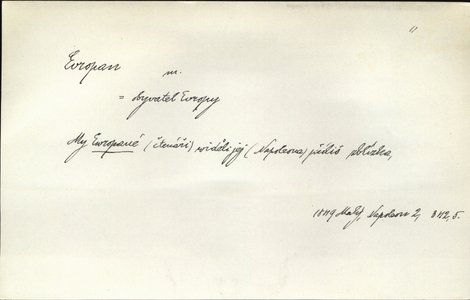 "
Evropan m.
= obyvatel Evropy
My Evropané (čtenáři) viděli jej (Napoleona) příliš zblízka,
1849 Malý, Napoleon 2, 342, 5.